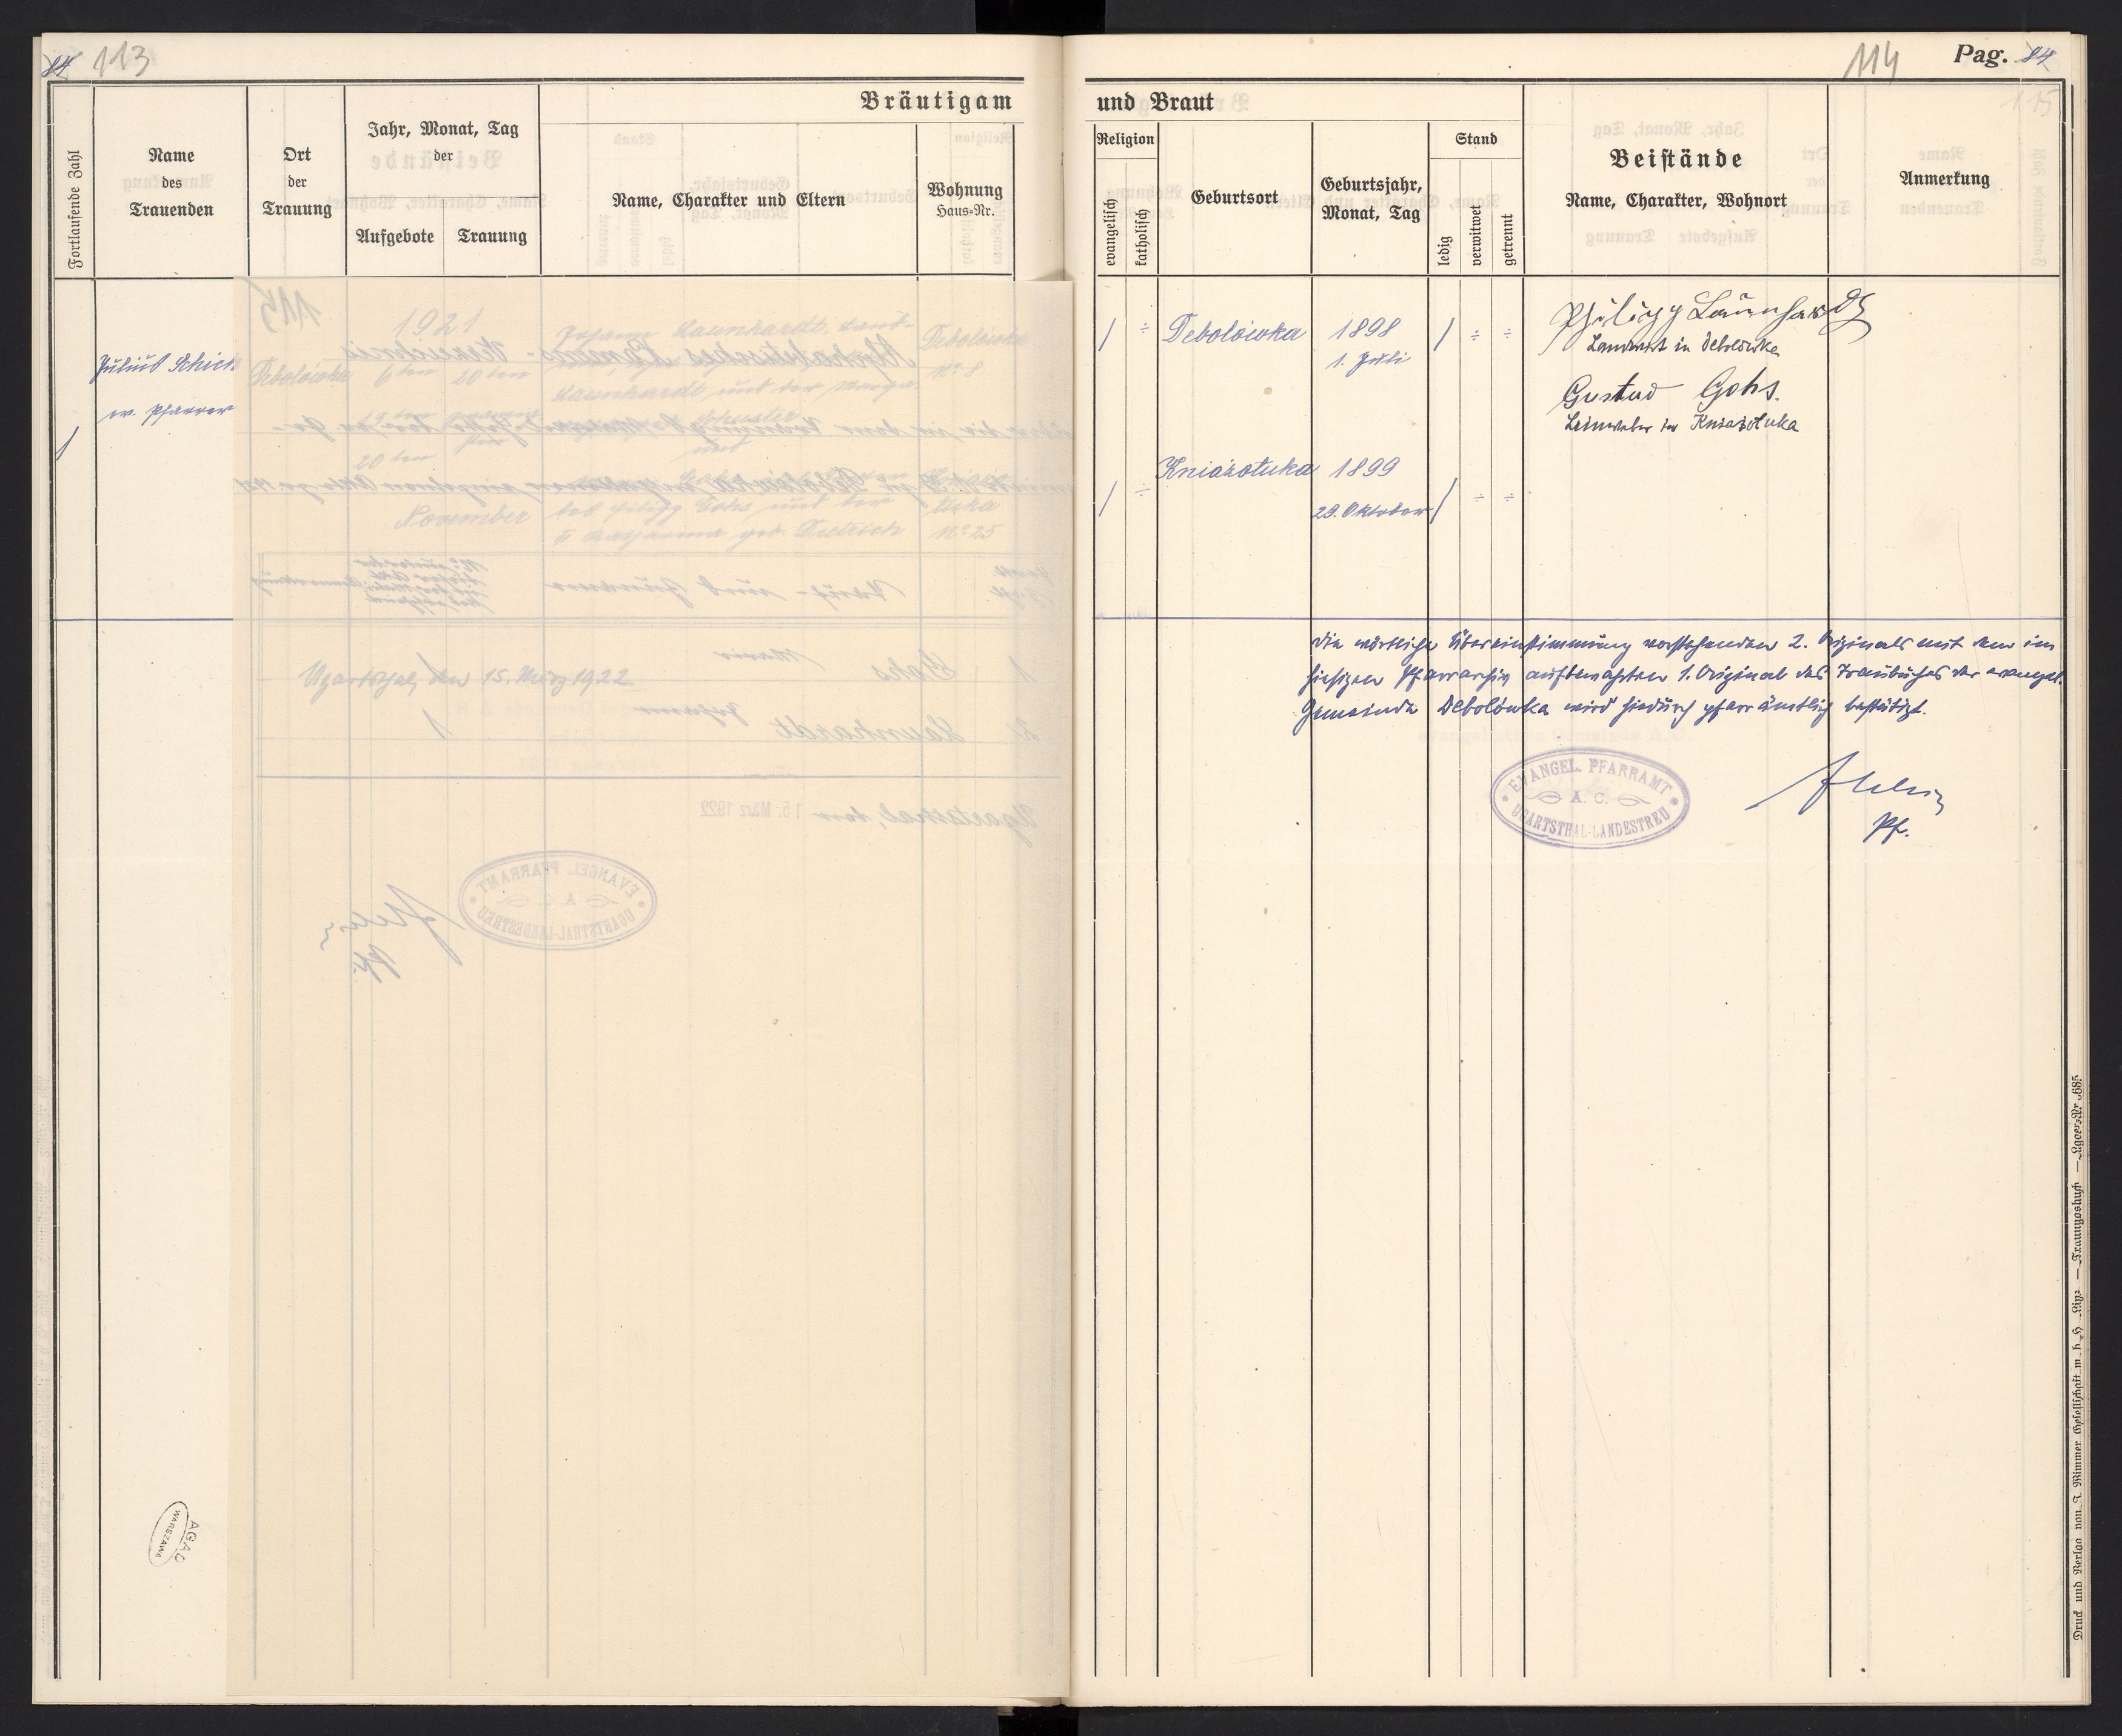 84 113
Bräutigam
Fortlaufende Zahl
Name
des
Trauenden
Ort
der
Trauung
Jahr, Monat, Tag
der
Aufgebote
Trauung
Name, Charakter und Eltern
Wohnung
Haus-Nr.
Julius Schick
ev. Pfarrer
1
1921
Johann Launhardt, Land-
Debolówka
Debolówka 6ten 20ten
Nº 8
Launhardt und der Marga-
Schuster
und
20ten
November
des Philipp Gohs und der
Katharina geb. Dietrich
Nº 25
Ugartsthal, den 15. März 1922.
AGAD
WARSZAWA
114
Pag. 84
und Braut
Religion
evangelisch
katholisch
Geburtsort
Geburtsjahr,
Monat, Tag
Stand
ledig
verwitwet
getrennt
Beistände
Name, Charakter, Wohnort
Anmerkung
/ ÷ Debolówka 1898 / ÷ ÷
1. Juli
Philipp Launhardt
Landwirt in Debolówka
Gustav Gohs.
Leinweber in Kniażołuka
/ ÷ Kniażołuka 1899 / ÷ ÷
29. Oktober
Die wörtliche Übereinstimmung vorstehenden 2. Originals mit dem im
hiesigen Pfarrarchiv aufbewahrten 1. Original des Traubuches der evangel.
Gemeinde Debolówka wird hiedurch pfarrämtlich bestätigt.
EVANGEL. PFARRAMT
A. C.
UGARTSTHAL-LANDESTREU
Pf.
Druck und Verlag von J. Wimmer Gesellschaft m. b. H. Linz — Trauungsbuch — Lager-Nr. 685